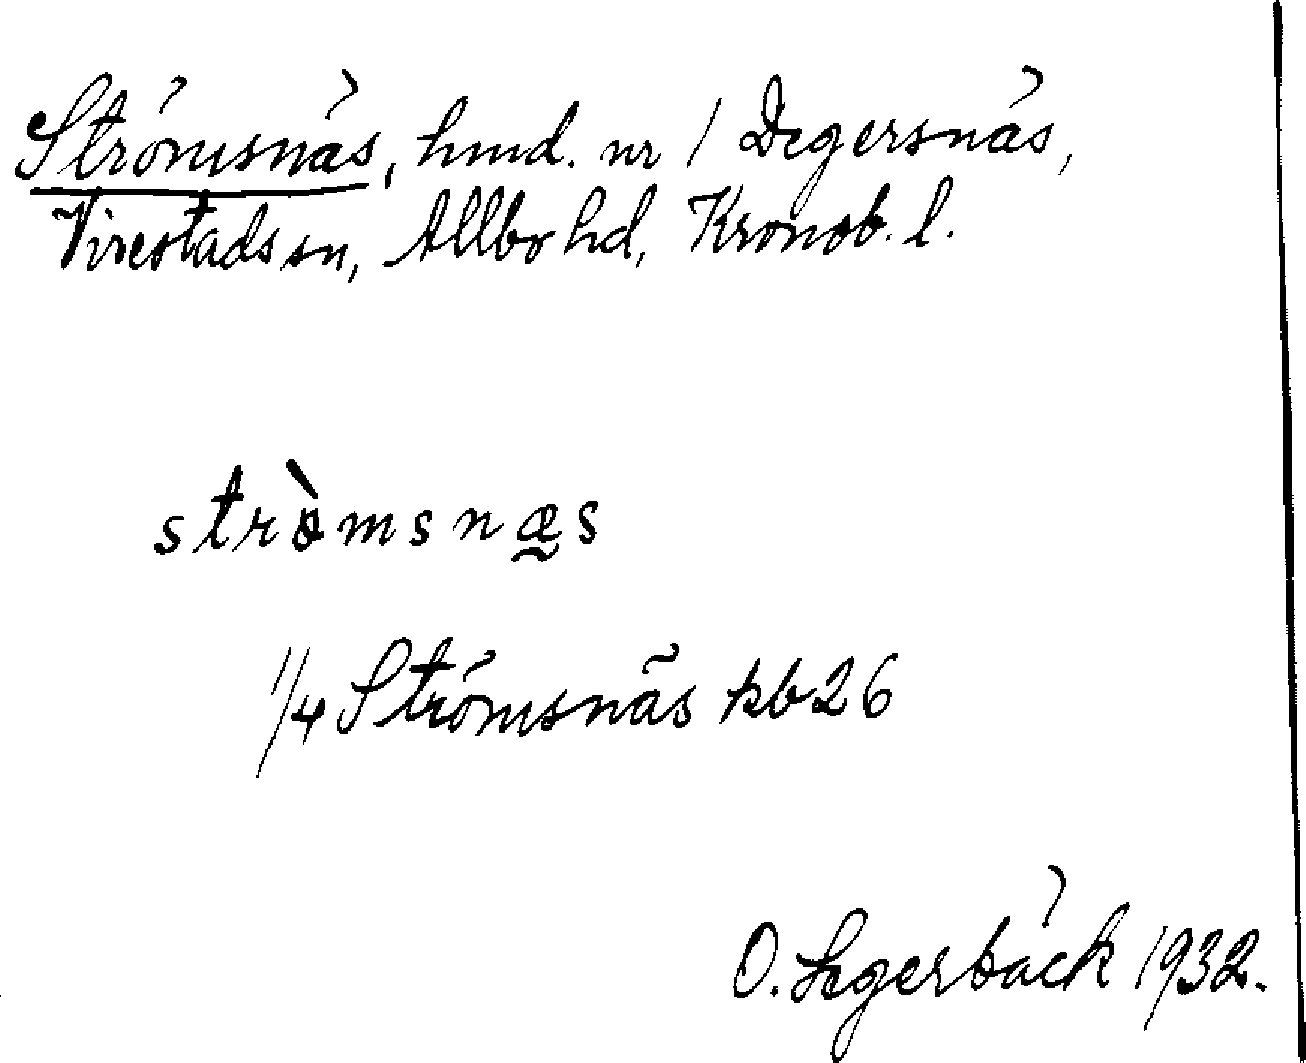 Strömsnäs, hmd. nr 1 Degersnäs,
Virestads sn, Allbo hd, Kronob. l.
stròmsnæ̰s
1/4 Strömsnäs kb 26
O. Segerbäck 1932.